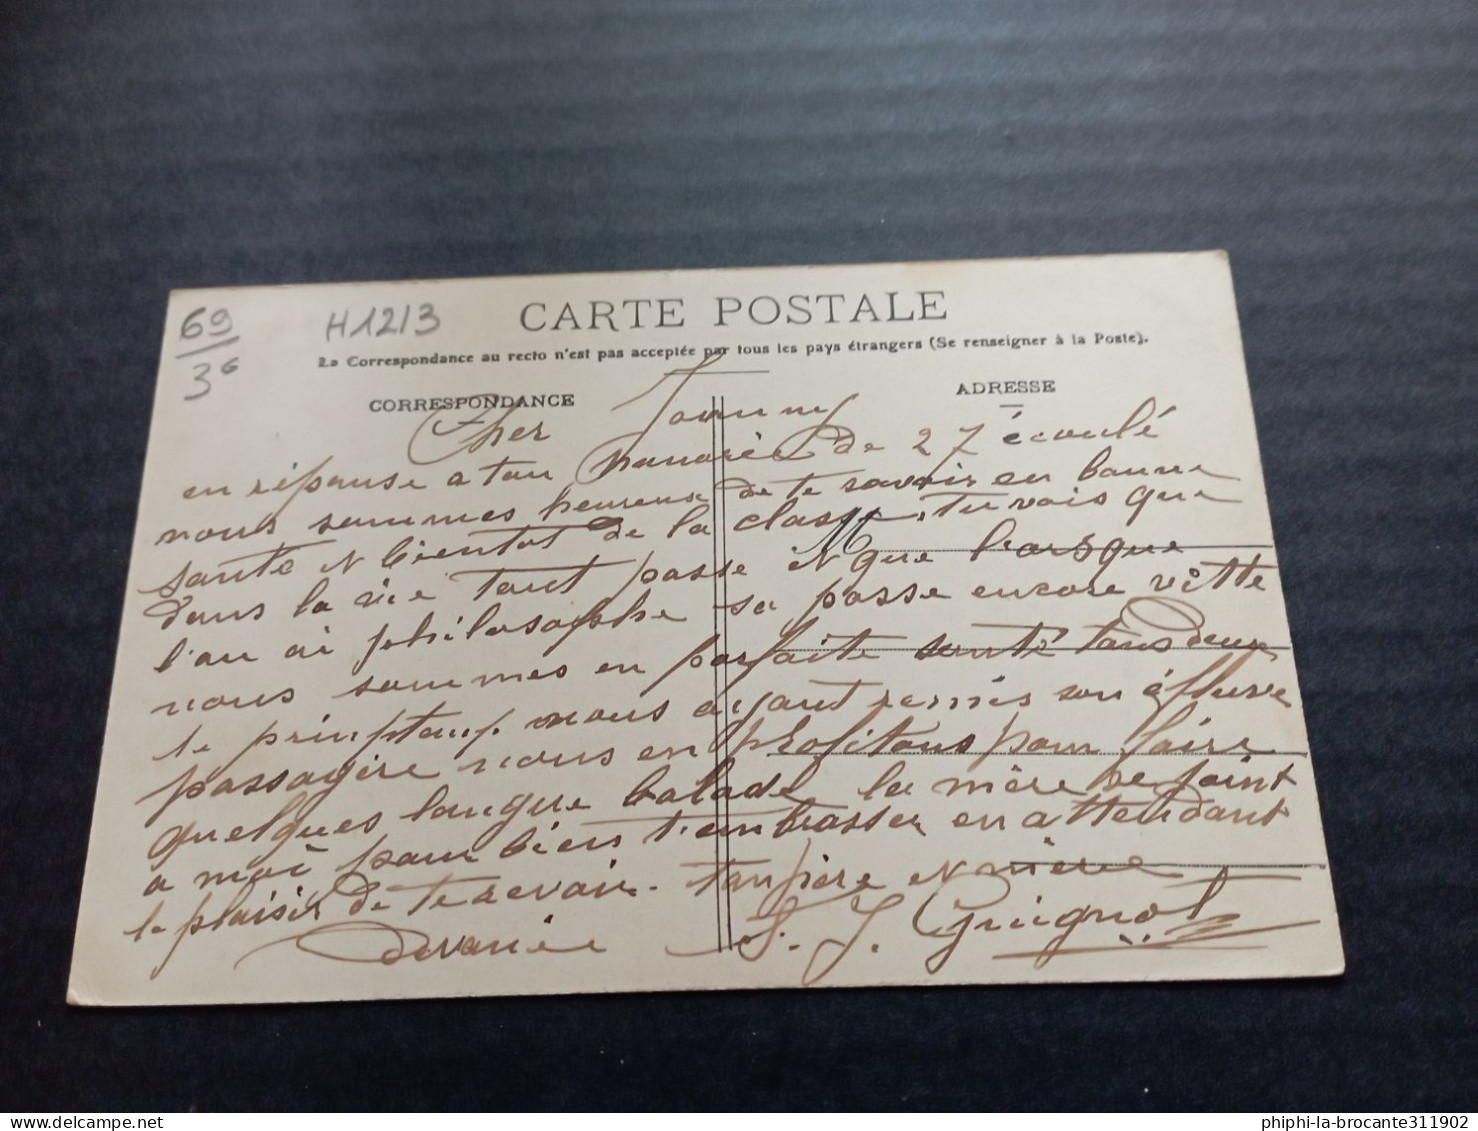 69
36
H1213
CARTE POSTALE
La Correspondance au recto n'est pas acceptée par tous les pays étrangers (Se renseigner à la Poste).
CORRESPONDANCE
ADRESSE
Cher Joanny
en réponse a ton de 27 écoulé
nous sommes heureux de te savoir en bonne
santé et bientot de la classe, tu vois que
M
dans la vie tout passe et que lorsque
l'on ai philosophe sa passe encore vitte
nous sommes en parfaite santé tous deux
le printemps nous ayant remis son effluve
passagère nous en profitons pour faire
quelques longue balade la mère se joint
a moi pour bien t'embrasser en attendant
le plaisir de te revoir. ton père et mère
S. J. Guignot
phiphi-la-brocante311902